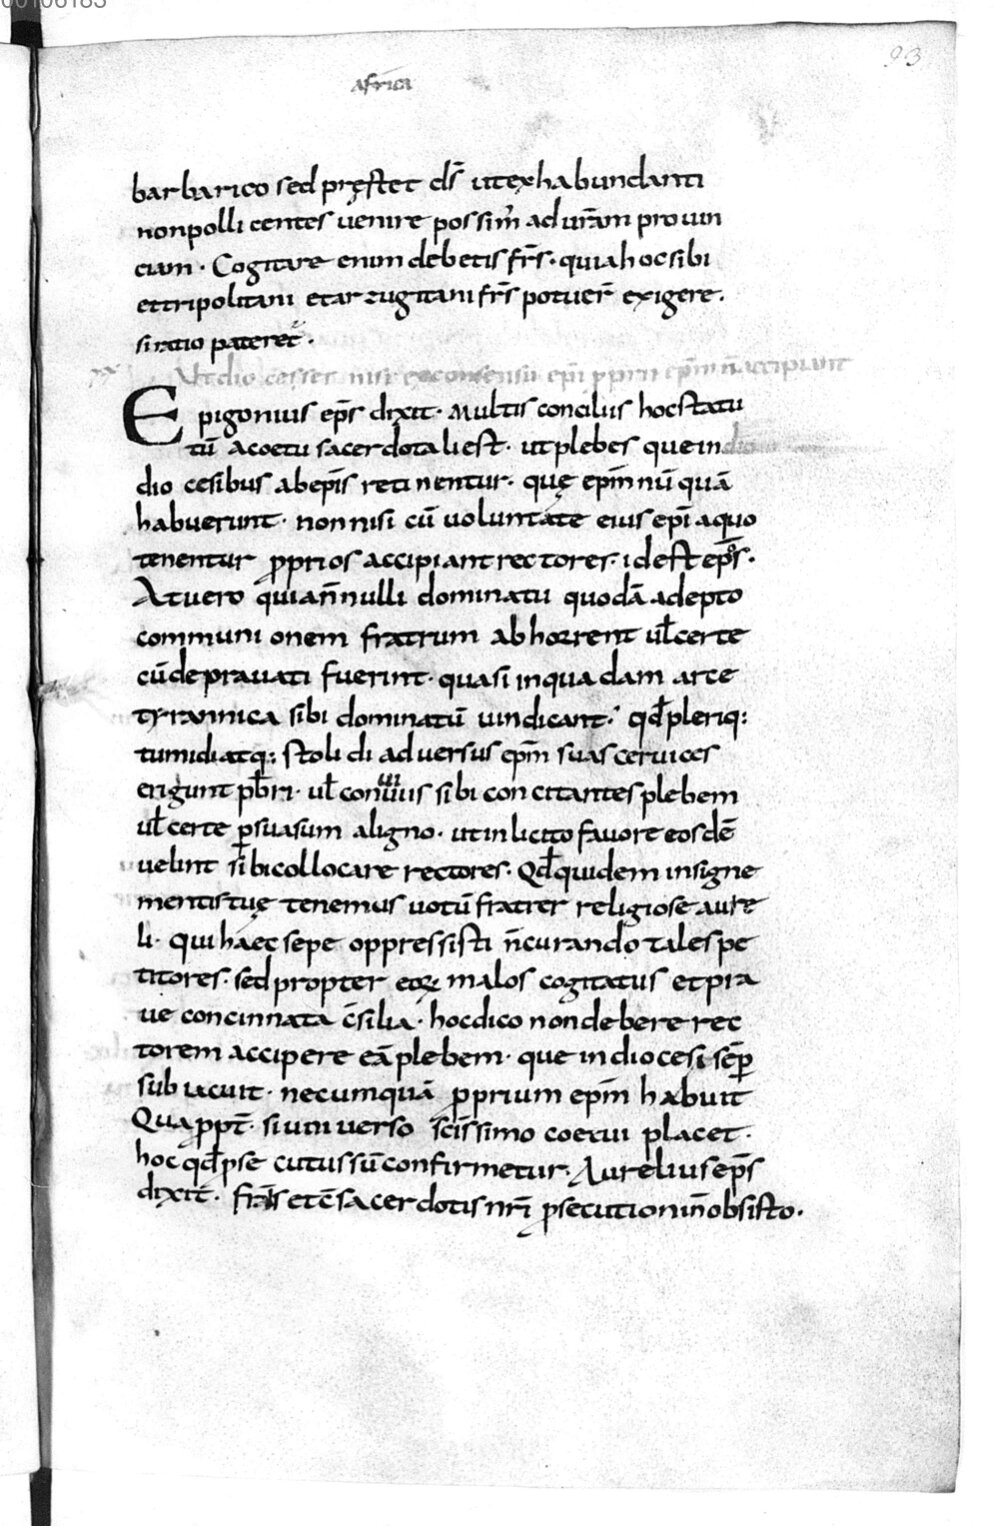 00106183
93
africa
barbarico sed pręstet d̄s ut ex habundanti
non pollicentes uenire possim̄ ad ur̄am prouin
ciam · Cogitare enim debetis fr̄s · quia hoc sibi
et tripolitani et arzugitani fr̄s potuer̄ exigere ·
si ratio pateret̄ ·
Ut dioceses nisi ex consensu ep̄i p̱prii ep̄m n̄ accipiant
Epigonius ep̄s dixit · Multis conciliis hoc statu
tū a coetu sacerdotali est · ut plebes que in
dio cesibus ab ep̄is retinentur · quę ep̄m nūquā
habuerunt · non nisi cū uoluntate eius ep̄i a quo
tenentur p̱prios accipiant rectores · id est ep̄os ·
At uero quia n̄nulli dominatu quodā adepto
communionem fratrum abhorrent uł certe
cū deprauati fuerint · quasi in quadam arce
tyrannica sibi dominatū uindicant · qđ pleriq:
tumidi atq: stolidi aduersus ep̄m suas ceruices
erigunt pb̄ri · uł conuiuiis sibi concitantes plebem
uł certe p̱suasum aligno · ut inlicito fauore eosdē
uelint sibi collocare rectores · Qđ quidem insigne
mentis tuę tenemus uotū frater religiose aure
li · qui haec sepe oppressisti n̄ curando tales pe
titores · sed propter eoꝝ malos cogitatus et pra
ue concinnata c̄silia · hoc dico non debere rec
torem accipere eā plebem · que in diocesi sēp̱
subiacuit · nec umquā p̱prium ep̄m habuit
Quap̱pt̄ · si uniuerso sc̄issimo coetui placet ·
hoc qđ p̱secutus sū confirmetur · Aurelius ep̄s
dixit · fr̄is et c̄sacerdotis nr̄i p̱secutioni n̄ obsisto ·